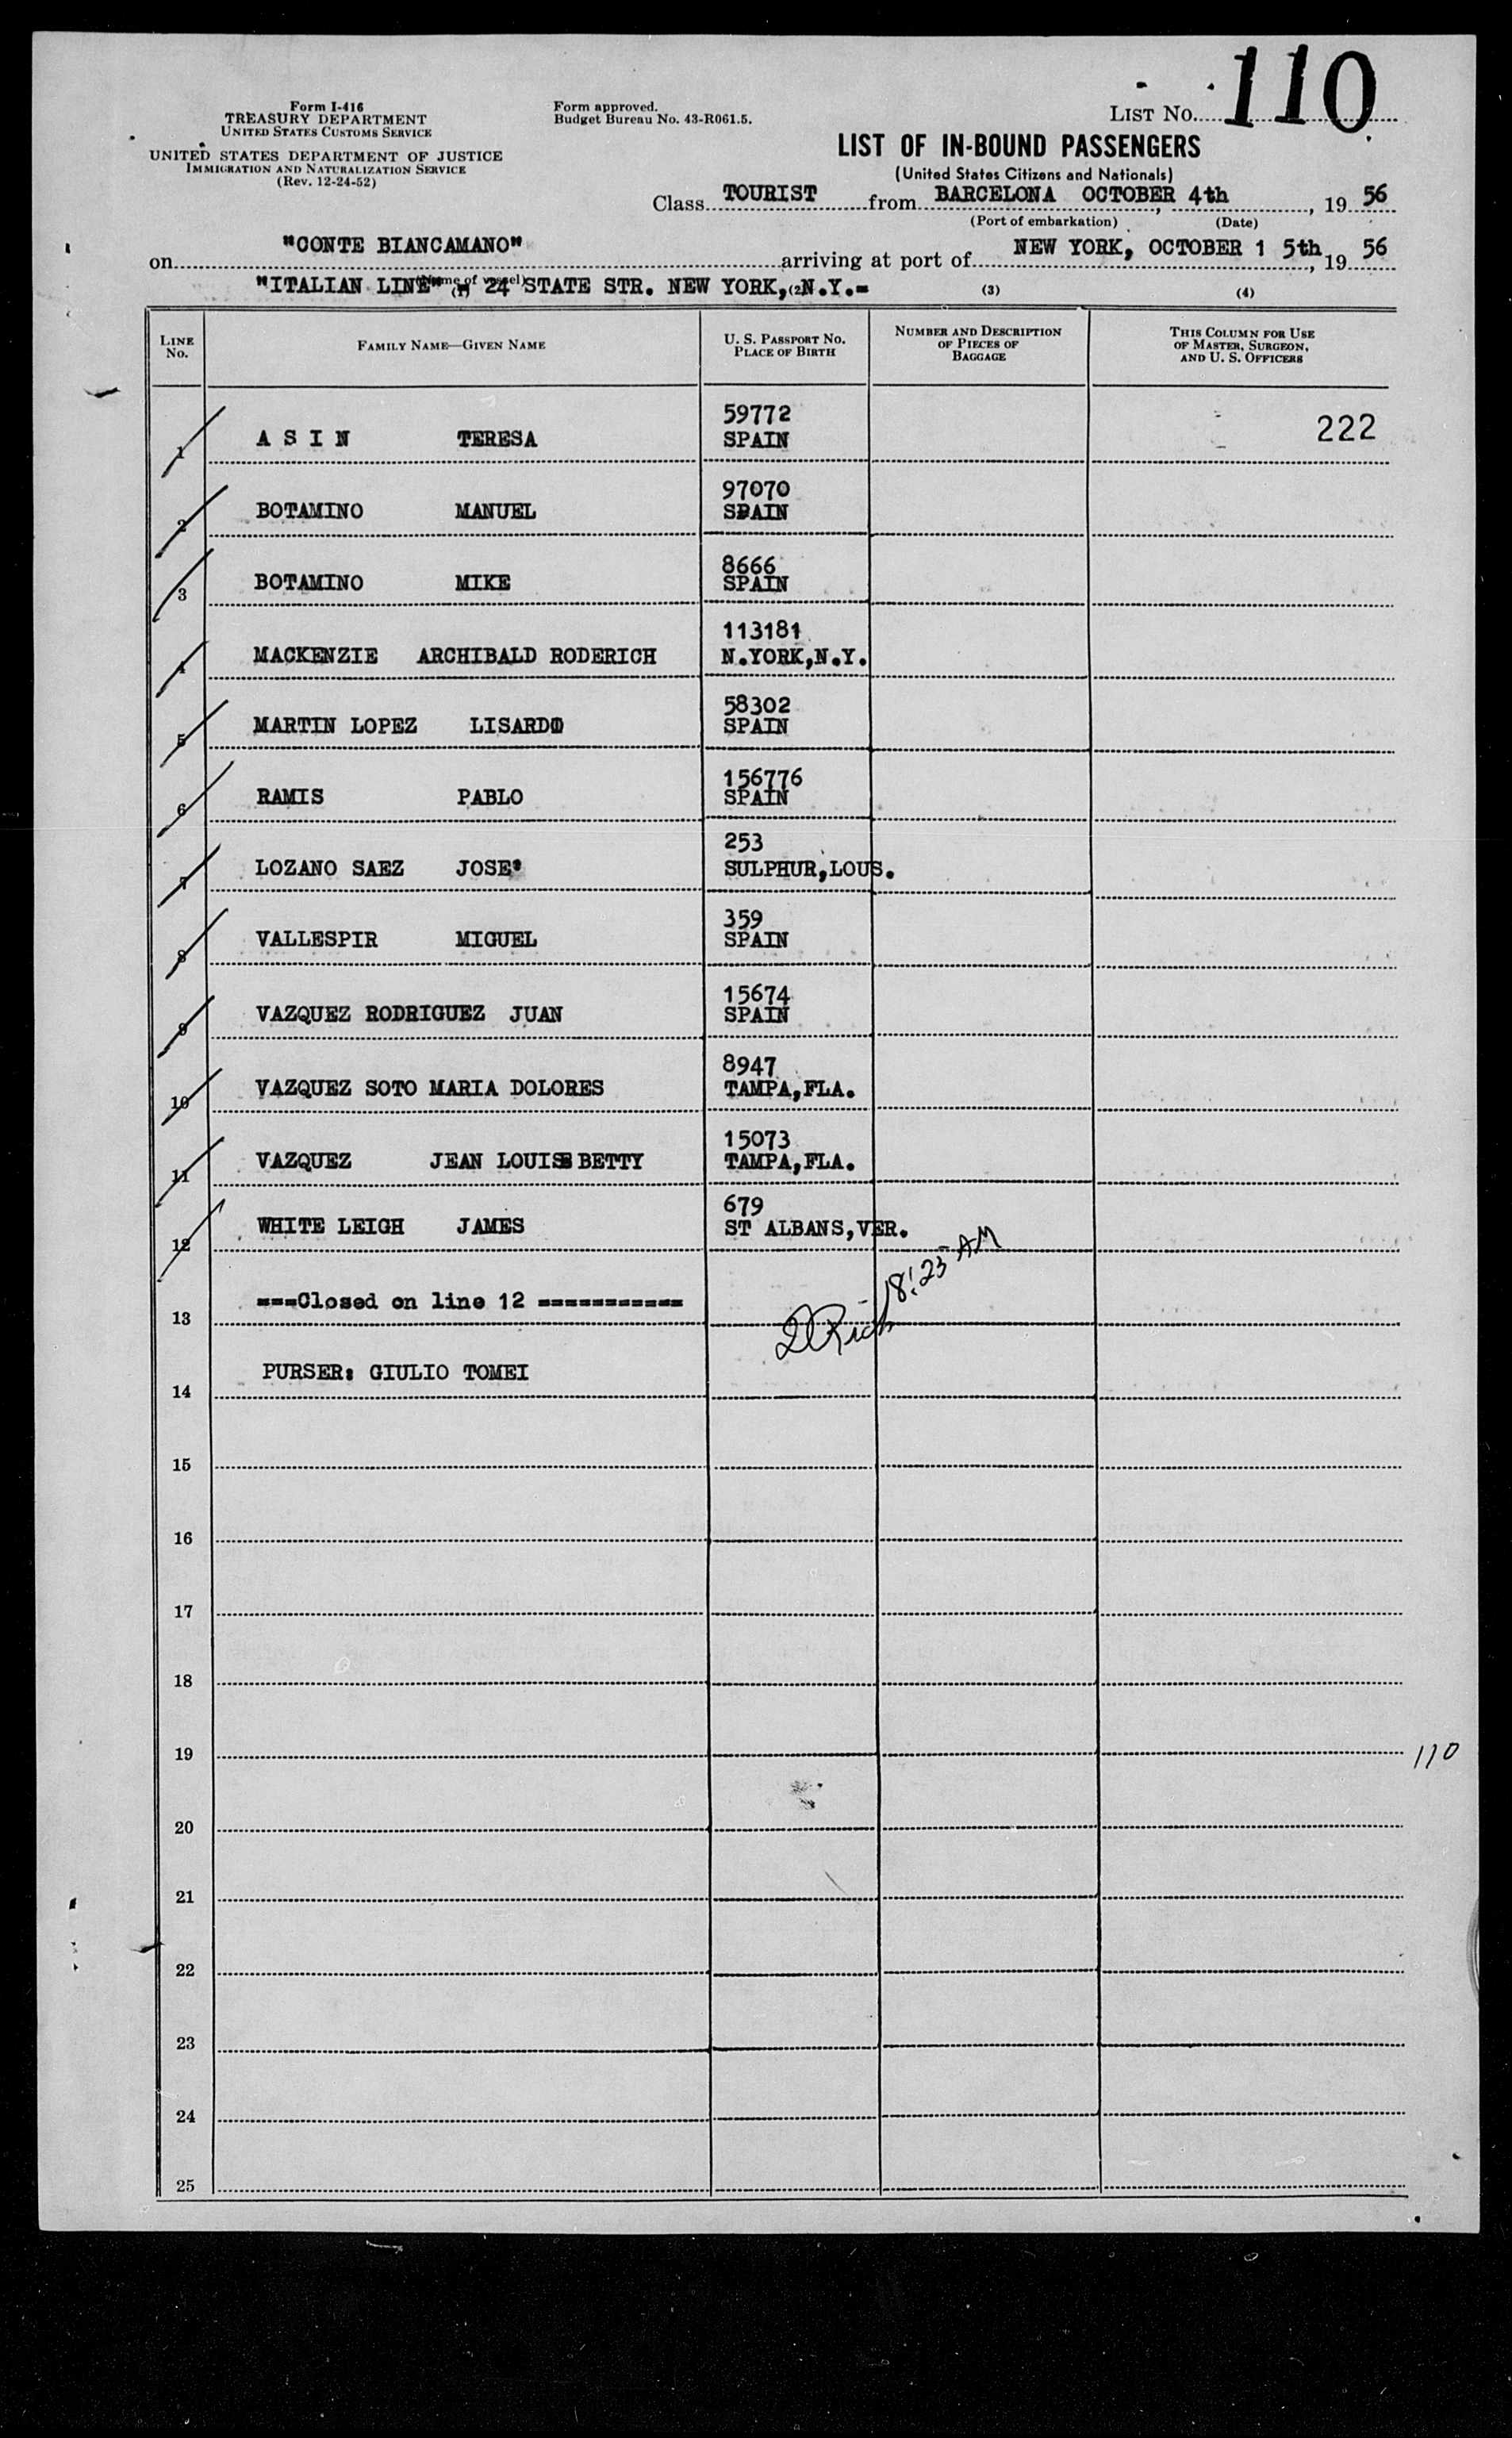 110
Form I-416
TREASURY DEPARTMENT
UNITED STATES CUSTOMS SERVICE
UNITED STATES DEPARTMENT OF JUSTICE
IMMIGRATION AND NATURALIZATION SERVICE
(Rev. 12-24-52)
Form approved.
Budget Bureau No. 43-R061.5.
LIST No.
LIST OF IN-BOUND PASSENGERS
(United States Citizens and Nationals)
Class TOURIST from BARCELONA OCTOBER 4th, 19 56
(Port of embarkation) (Date)
on "CONTE BIANCAMANO" arriving at port of NEW YORK, OCTOBER 1 5th, 19 56
"ITALIAN LINE" (1) 24 STATE STR. NEW YORK, (2 N.Y.= (3) (4)
LINE No. FAMILY NAME—GIVEN NAME U. S. PASSPORT No. PLACE OF BIRTH NUMBER AND DESCRIPTION OF PIECES OF BAGGAGE THIS COLUMN FOR USE OF MASTER, SURGEON, AND U. S. OFFICERS
59772 222
1 A S I N TERESA SPAIN
97070
2 BOTAMINO MANUEL SPAIN
8666
3 BOTAMINO MIKE SPAIN
113181
4 MACKENZIE ARCHIBALD RODERICH N.YORK,N.Y.
58302
5 MARTIN LOPEZ LISARDO SPAIN
156776
6 RAMIS PABLO SPAIN
253
7 LOZANO SAEZ JOSE' SULPHUR,LOUS.
359
8 VALLESPIR MIGUEL SPAIN
15674
9 VAZQUEZ RODRIGUEZ JUAN SPAIN
8947
10 VAZQUEZ SOTO MARIA DOLORES TAMPA,FLA.
15073
11 VAZQUEZ JEAN LOUISE BETTY TAMPA,FLA.
679
12 WHITE LEIGH JAMES ST ALBANS,VER.
8:25 AM
13 ===Closed on line 12 ===========
14 PURSER: GIULIO TOMEI
15
16
17
18
19 110
20
21
22
23
24
25